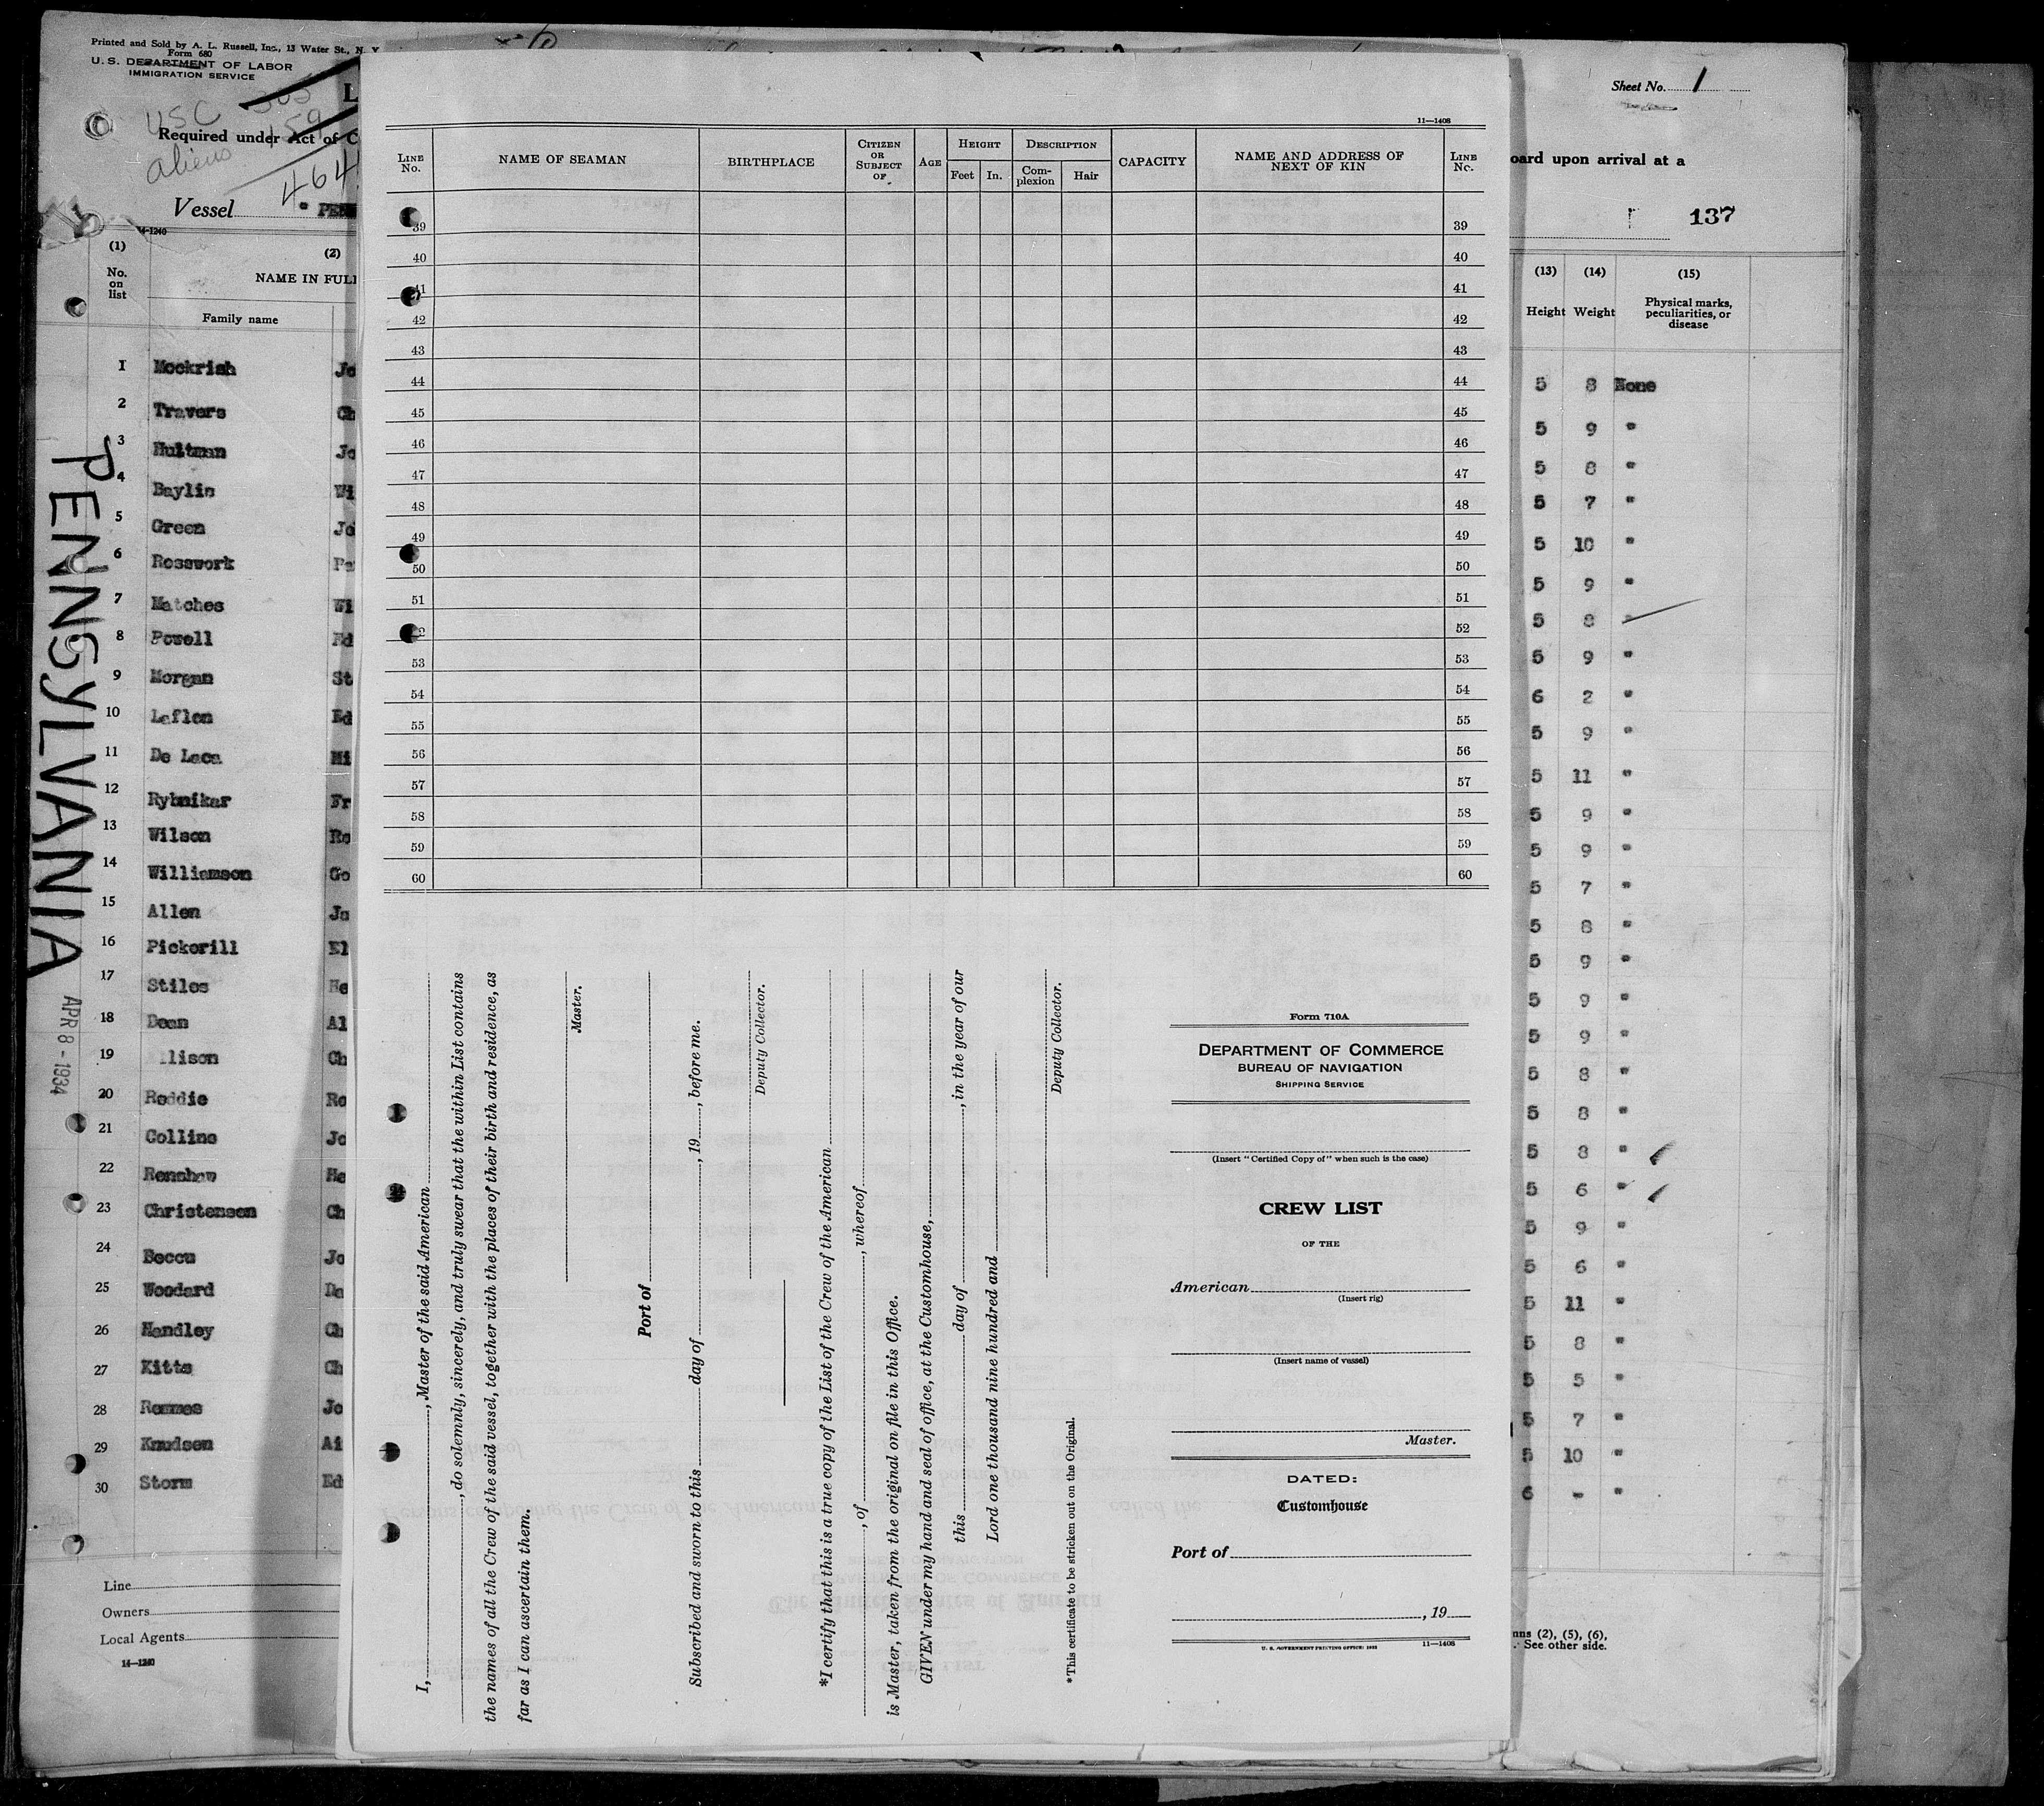 Printed and Sold by A. L. Russell, Inc., 13 Water St., N. Y.
Form 680
U. S. DEPARTMENT OF LABOR
IMMIGRATION SERVICE
USC 305
aliens 159
464
L
Required under Act of C
Vessel " PENN
14-1240
(1)
No. on list
(2)
NAME IN FULL
Family name
1 Mockrish Jo
2 Travers Ch
3 Hultman Jo
4 Baylis Wi
5 Green Jo
6 Rosswork Pe
7 Matches Wi
8 Powell Ed
9 Morgan St
10 Laflen Ed
11 De Laca Mi
12 Rybnikar Fr
13 Wilson Ro
14 Williamson Go
15 Allen Ja
16 Pickerill El
17 Stiles He
18 Dean Al
19 llison Ch
20 Reddie Ro
21 Collins Jo
22 Renshaw He
23 Christensen Ch
24 Beccu Jo
25 Woodard Do
26 Handley Ch
27 Kitts Ch
28 Rommes Jo
29 Knudsen Ai
30 Storm Ed
Line
Owners
Local Agents
14-1240
PENNSYLVANIA
APR 8 - 1934
11—1408
LINE No.
NAME OF SEAMAN
BIRTHPLACE
CITIZEN OR SUBJECT OF
AGE
HEIGHT
Feet In.
DESCRIPTION
Complexion Hair
CAPACITY
NAME AND ADDRESS OF NEXT OF KIN
LINE No.
39 39
40 40
41 41
42 42
43 43
44 44
45 45
46 46
47 47
48 48
49 49
50 50
51 51
52 52
53 53
54 54
55 55
56 56
57 57
58 58
59 59
60 60
I, , Master of the said American
, do solemnly, sincerely, and truly swear that the within List contains
the names of all the Crew of the said vessel, together with the places of their birth and residence, as
far as I can ascertain them.
Master.
Port of
Subscribed and sworn to this day of , 19 , before me.
Deputy Collector.
*I certify that this is a true copy of the List of the Crew of the American
, of , whereof
is Master, taken from the original on file in this Office.
GIVEN under my hand and seal of office, at the Customhouse,
this day of , in the year of our
Lord one thousand nine hundred and
Deputy Collector.
*This certificate to be stricken out on the Original.
Form 710A
DEPARTMENT OF COMMERCE
BUREAU OF NAVIGATION
SHIPPING SERVICE
(Insert "Certified Copy of" when such is the case)
CREW LIST
OF THE
American
(Insert rig)
(Insert name of vessel)
Master.
DATED:
Customhouse
Port of
, 19
U. S. GOVERNMENT PRINTING OFFICE: 1932 11—1408
Sheet No. 1
oard upon arrival at a
137
(13)
Height
(14)
Weight
(15)
Physical marks, peculiarities, or disease
5 8 None
5 9 "
5 8 "
5 7 "
5 10 "
5 9 "
5 8
5 9 "
6 2 "
5 9 "
5 11 "
5 9 "
5 9 "
5 7 "
5 8 "
5 9 "
5 9 "
5 9 "
5 8 "
5 8 "
5 8 "
5 6 "
5 9 "
5 6 "
5 11 "
5 8 "
5 5 "
5 7 "
5 10 "
6 - "
nns (2), (5), (6),
. See other side.